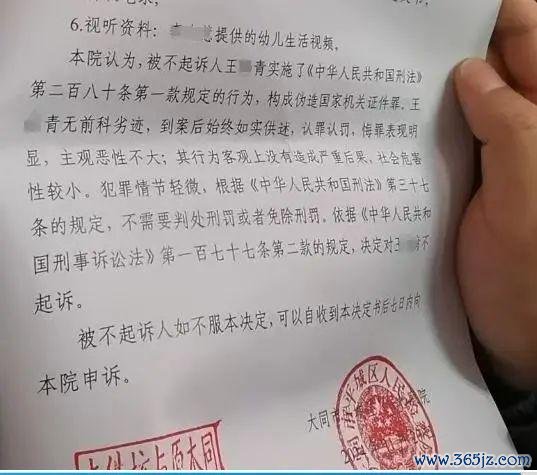 6.视听资料：提供的幼儿生活视频，
本院认为，被不起诉人王青实施了《中华人民共和国刑法》
第二百八十条第一款规定的行为，构成伪造国家机关证件罪。王
青无前科劣迹，到案后始终如实供述，认罪认罚，悔罪表现明
显，主观恶性不大；其行为客观上没有造成严重后果，社会危害
性较小。犯罪情节轻微，根据《中华人民共和国刑法》第三十七
条的规定，不需要判处刑罚或者免除刑罚。依据《中华人民共和
国刑事诉讼法》第一百七十七条第二款的规定，决定对王不
起诉。
被不起诉人如不服本决定，可以自收到本决定书后七日内向
本院申诉。
大同市
院
城区人民
www.365jz.com